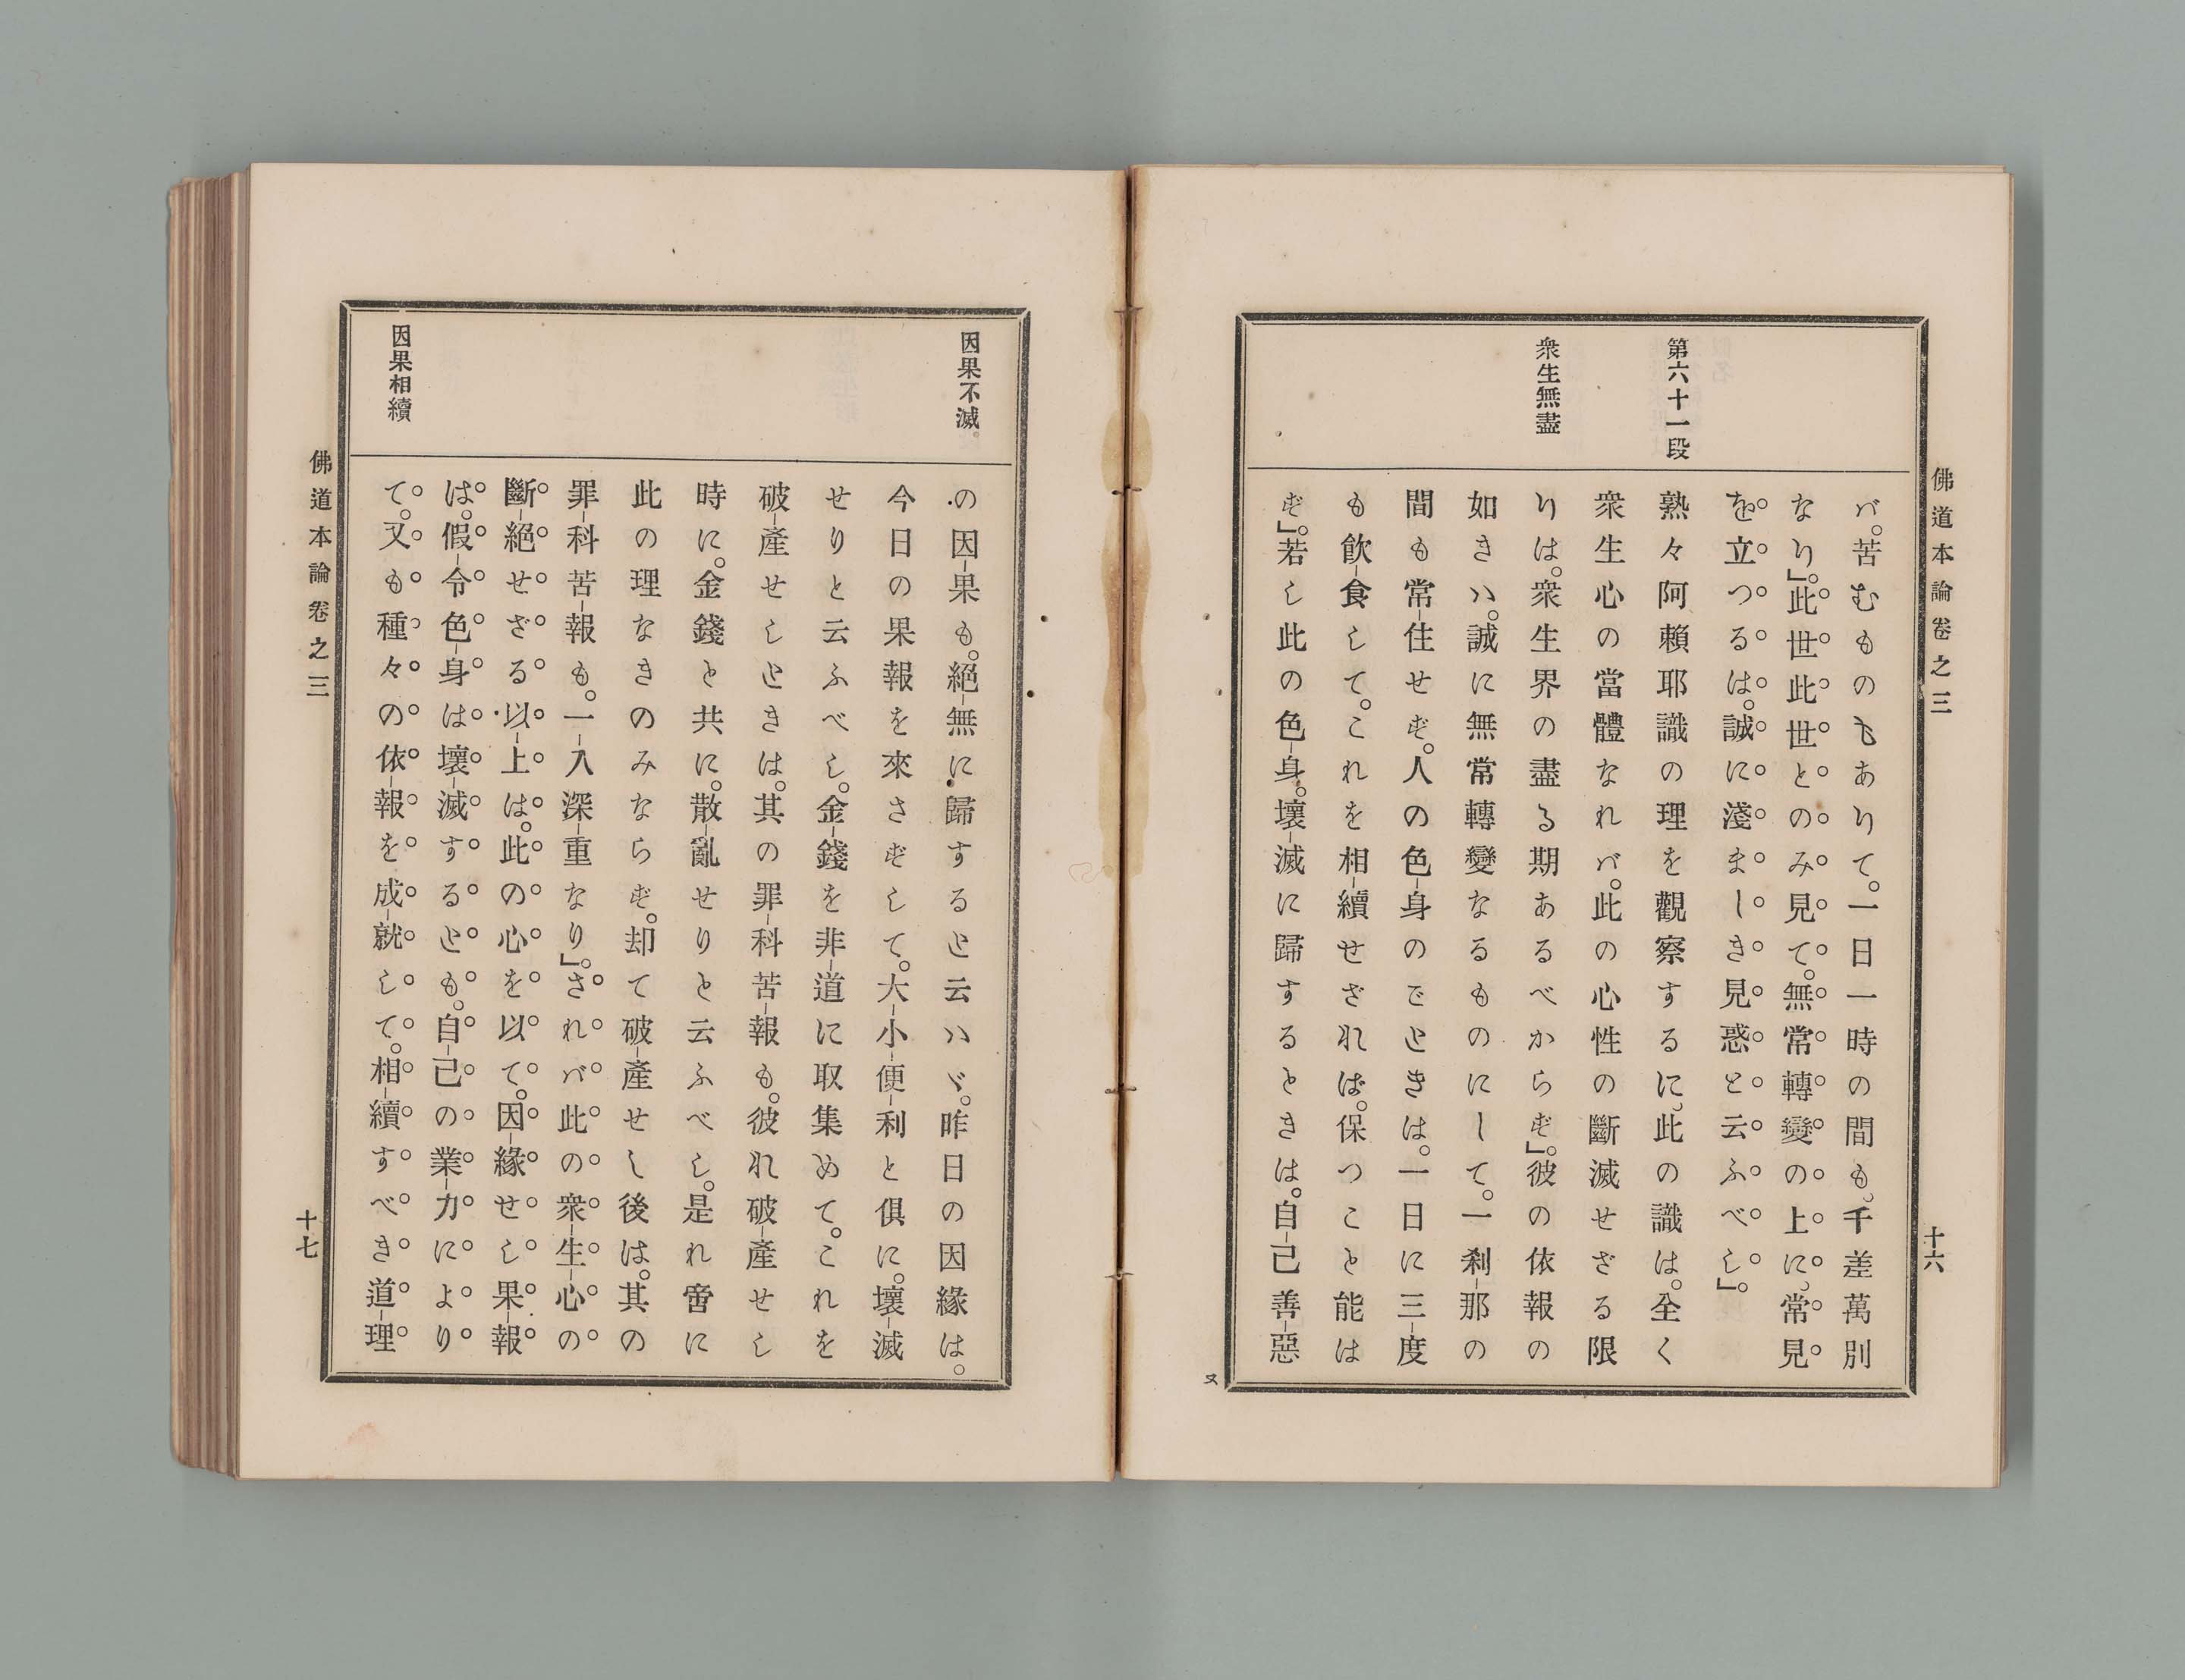 佛道本論卷之三
十六
第六十一段
衆生無盡
バ。苦むものもありて。一日一時の間も。千差萬別
なり」。此世此世とのみ見て。無常轉變の上に。常見
を立つるは。誠に淺ましき見惑と云ふべし」。
熟々阿賴耶識の理を觀察するに。此の識は。全く
衆生心の當體なれバ。此の心性の斷滅せざる限
りは。衆生界の盡る期あるべからず」。彼の依報の
如きハ。誠に無常轉變なるものにして。一刹那の
間も常住せず。人の色身のごときは。一日に三度
も飮食して。これを相續せざれば。保つこと能は
ず」。若し此の色身。壞滅に歸するときは。自己善惡
ヌ
因果不滅。
因果相續
の因果も。絕無に歸すると云ハヾ。昨日の因緣は。
今日の果報を來さずして。大小便利と俱に。壞滅
せりと云ふべし。金錢を非道に取集めて。これを
破產せしときは。其の罪科苦報も。彼れ破產せし
時に。金錢と共に。散亂せりと云ふべし。是れ啻に
此の理なきのみならず。却て破產せし後は。其の
罪科苦報も。一入深重なり」。されバ此の衆生心の
斷絕せざる以上は。此の心を以て。因緣せし果報
は。假令色身は壞滅するとも。自己の業力により
て。又も種々の依報を成就して。相續すべき道理
佛道本論卷之三
十七